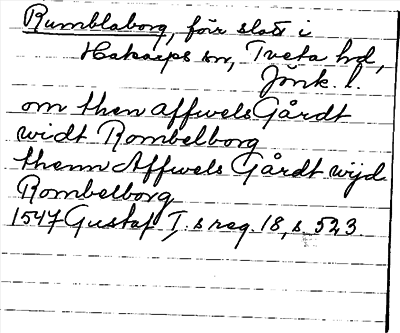 Rumblaborg, förr slott i
Hakarps sn, Tveta hd,
Jönk. l.
om then affwels Gårdt
widt Rombelborg
thenn Affwels Gårdt wijd
Rombelborg
1547 Gustaf I:s reg. 18, s. 523.